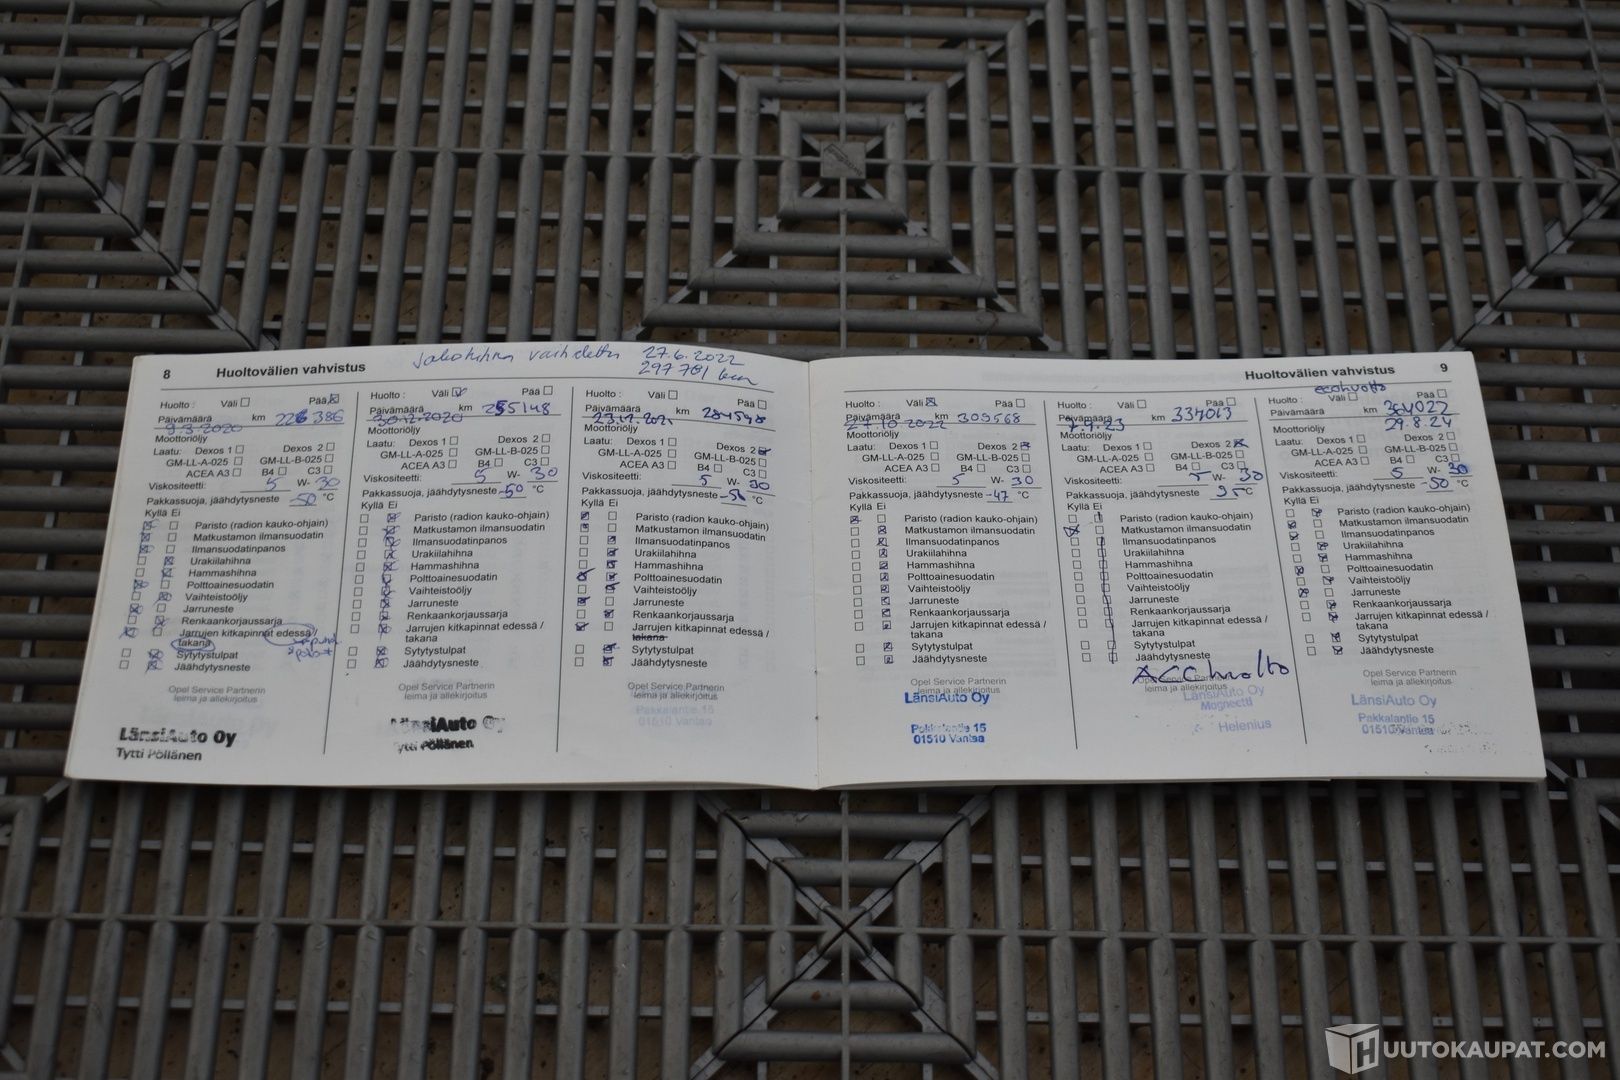 8 Huoltovälien vahvistus
jakohihna vaihdettu 27.6.2022
297 701 km
Huolto : Väli Pää
Päivämäärä km 226 386
9.3.2020
Moottoriöljy
Laatu: Dexos 1 Dexos 2
GM-LL-A-025 GM-LL-B-025
ACEA A3 B4 C3
Viskositeetti: 5 W- 30
Pakkassuoja, jäähdytysneste -50 °C
Kyllä Ei
Paristo (radion kauko-ohjain)
Matkustamon ilmansuodatin
Ilmansuodatinpanos
Urakiilahihna
Hammashihna
Polttoainesuodatin
Vaihteistoöljy
Jarruneste
Renkaankorjaussarja
Jarrujen kitkapinnat edessä /
takana
Sytytystulpat
Jäähdytysneste
LänsiAuto Oy
Tytti Pöllänen
Huolto : Väli Pää
Päivämäärä km 255148
30.12.2020
Moottoriöljy
Laatu: Dexos 1 Dexos 2
GM-LL-A-025 GM-LL-B-025
ACEA A3 B4 C3
Viskositeetti: 5 W- 30
Pakkassuoja, jäähdytysneste -50 °C
Kyllä Ei
Paristo (radion kauko-ohjain)
Matkustamon ilmansuodatin
Ilmansuodatinpanos
Urakiilahihna
Hammashihna
Polttoainesuodatin
Vaihteistoöljy
Jarruneste
Renkaankorjaussarja
Jarrujen kitkapinnat edessä /
takana
Sytytystulpat
Jäähdytysneste
Opel Service Partnerin
leima ja allekirjoitus
LänsiAuto Oy
Tytti Pöllänen
Huolto : Väli Pää
Päivämäärä km 284548
23.12.2021
Moottoriöljy
Laatu: Dexos 1 Dexos 2
GM-LL-A-025 GM-LL-B-025
ACEA A3 B4 C3
Viskositeetti: 5 W- 30
Pakkassuoja, jäähdytysneste °C
Kyllä Ei
Paristo (radion kauko-ohjain)
Matkustamon ilmansuodatin
Ilmansuodatinpanos
Urakiilahihna
Hammashihna
Polttoainesuodatin
Vaihteistoöljy
Jarruneste
Renkaankorjaussarja
Jarrujen kitkapinnat edessä /
takana
Sytytystulpat
Jäähdytysneste
Opel Service Partnerin
leima ja allekirjoitus
Pakkalantie 15
01510 Vantaa
Huoltovälien vahvistus 9
Huolto : Väli Pää
Päivämäärä km 309568
27.10 2022
Moottoriöljy
Laatu: Dexos 1 Dexos 2
GM-LL-A-025 GM-LL-B-025
ACEA A3 B4 C3
Viskositeetti: 5 W- 30
Pakkassuoja, jäähdytysneste -47 °C
Kyllä Ei
Paristo (radion kauko-ohjain)
Matkustamon ilmansuodatin
Ilmansuodatinpanos
Urakiilahihna
Hammashihna
Polttoainesuodatin
Vaihteistoöljy
Jarruneste
Renkaankorjaussarja
Jarrujen kitkapinnat edessä /
takana
Sytytystulpat
Jäähdytysneste
Opel Service Partnerin
leima ja allekirjoitus
LänsiAuto Oy
Pakkalantie 15
01510 Vantaa
Huolto : Väli Pää
Päivämäärä km 337013
Moottoriöljy
Laatu: Dexos 1 Dexos 2
GM-LL-A-025 GM-LL-B-025
ACEA A3 B4 C3
Viskositeetti: 5 W- 30
Pakkassuoja, jäähdytysneste °C
Kyllä Ei
Paristo (radion kauko-ohjain)
Matkustamon ilmansuodatin
Ilmansuodatinpanos
Urakiilahihna
Hammashihna
Polttoainesuodatin
Vaihteistoöljy
Jarruneste
Renkaankorjaussarja
Jarrujen kitkapinnat edessä /
takana
Sytytystulpat
Jäähdytysneste
ACC huolto
Opel Service Partnerin
leima ja allekirjoitus
LänsiAuto Oy
Helenius
ecohuolto
Huolto : Väli Pää
Päivämäärä km 364022
29.8.24
Moottoriöljy
Laatu: Dexos 1 Dexos 2
GM-LL-A-025 GM-LL-B-025
ACEA A3 B4 C3
Viskositeetti: 5 W- 30
Pakkassuoja, jäähdytysneste -50 °C
Kyllä Ei
Paristo (radion kauko-ohjain)
Matkustamon ilmansuodatin
Ilmansuodatinpanos
Urakiilahihna
Hammashihna
Polttoainesuodatin
Vaihteistoöljy
Jarruneste
Renkaankorjaussarja
Jarrujen kitkapinnat edessä /
takana
Sytytystulpat
Jäähdytysneste
Opel Service Partnerin
leima ja allekirjoitus
LänsiAuto Oy
Pakkalantie 15
01510 Vantaa
HUUTOKAUPAT.COM